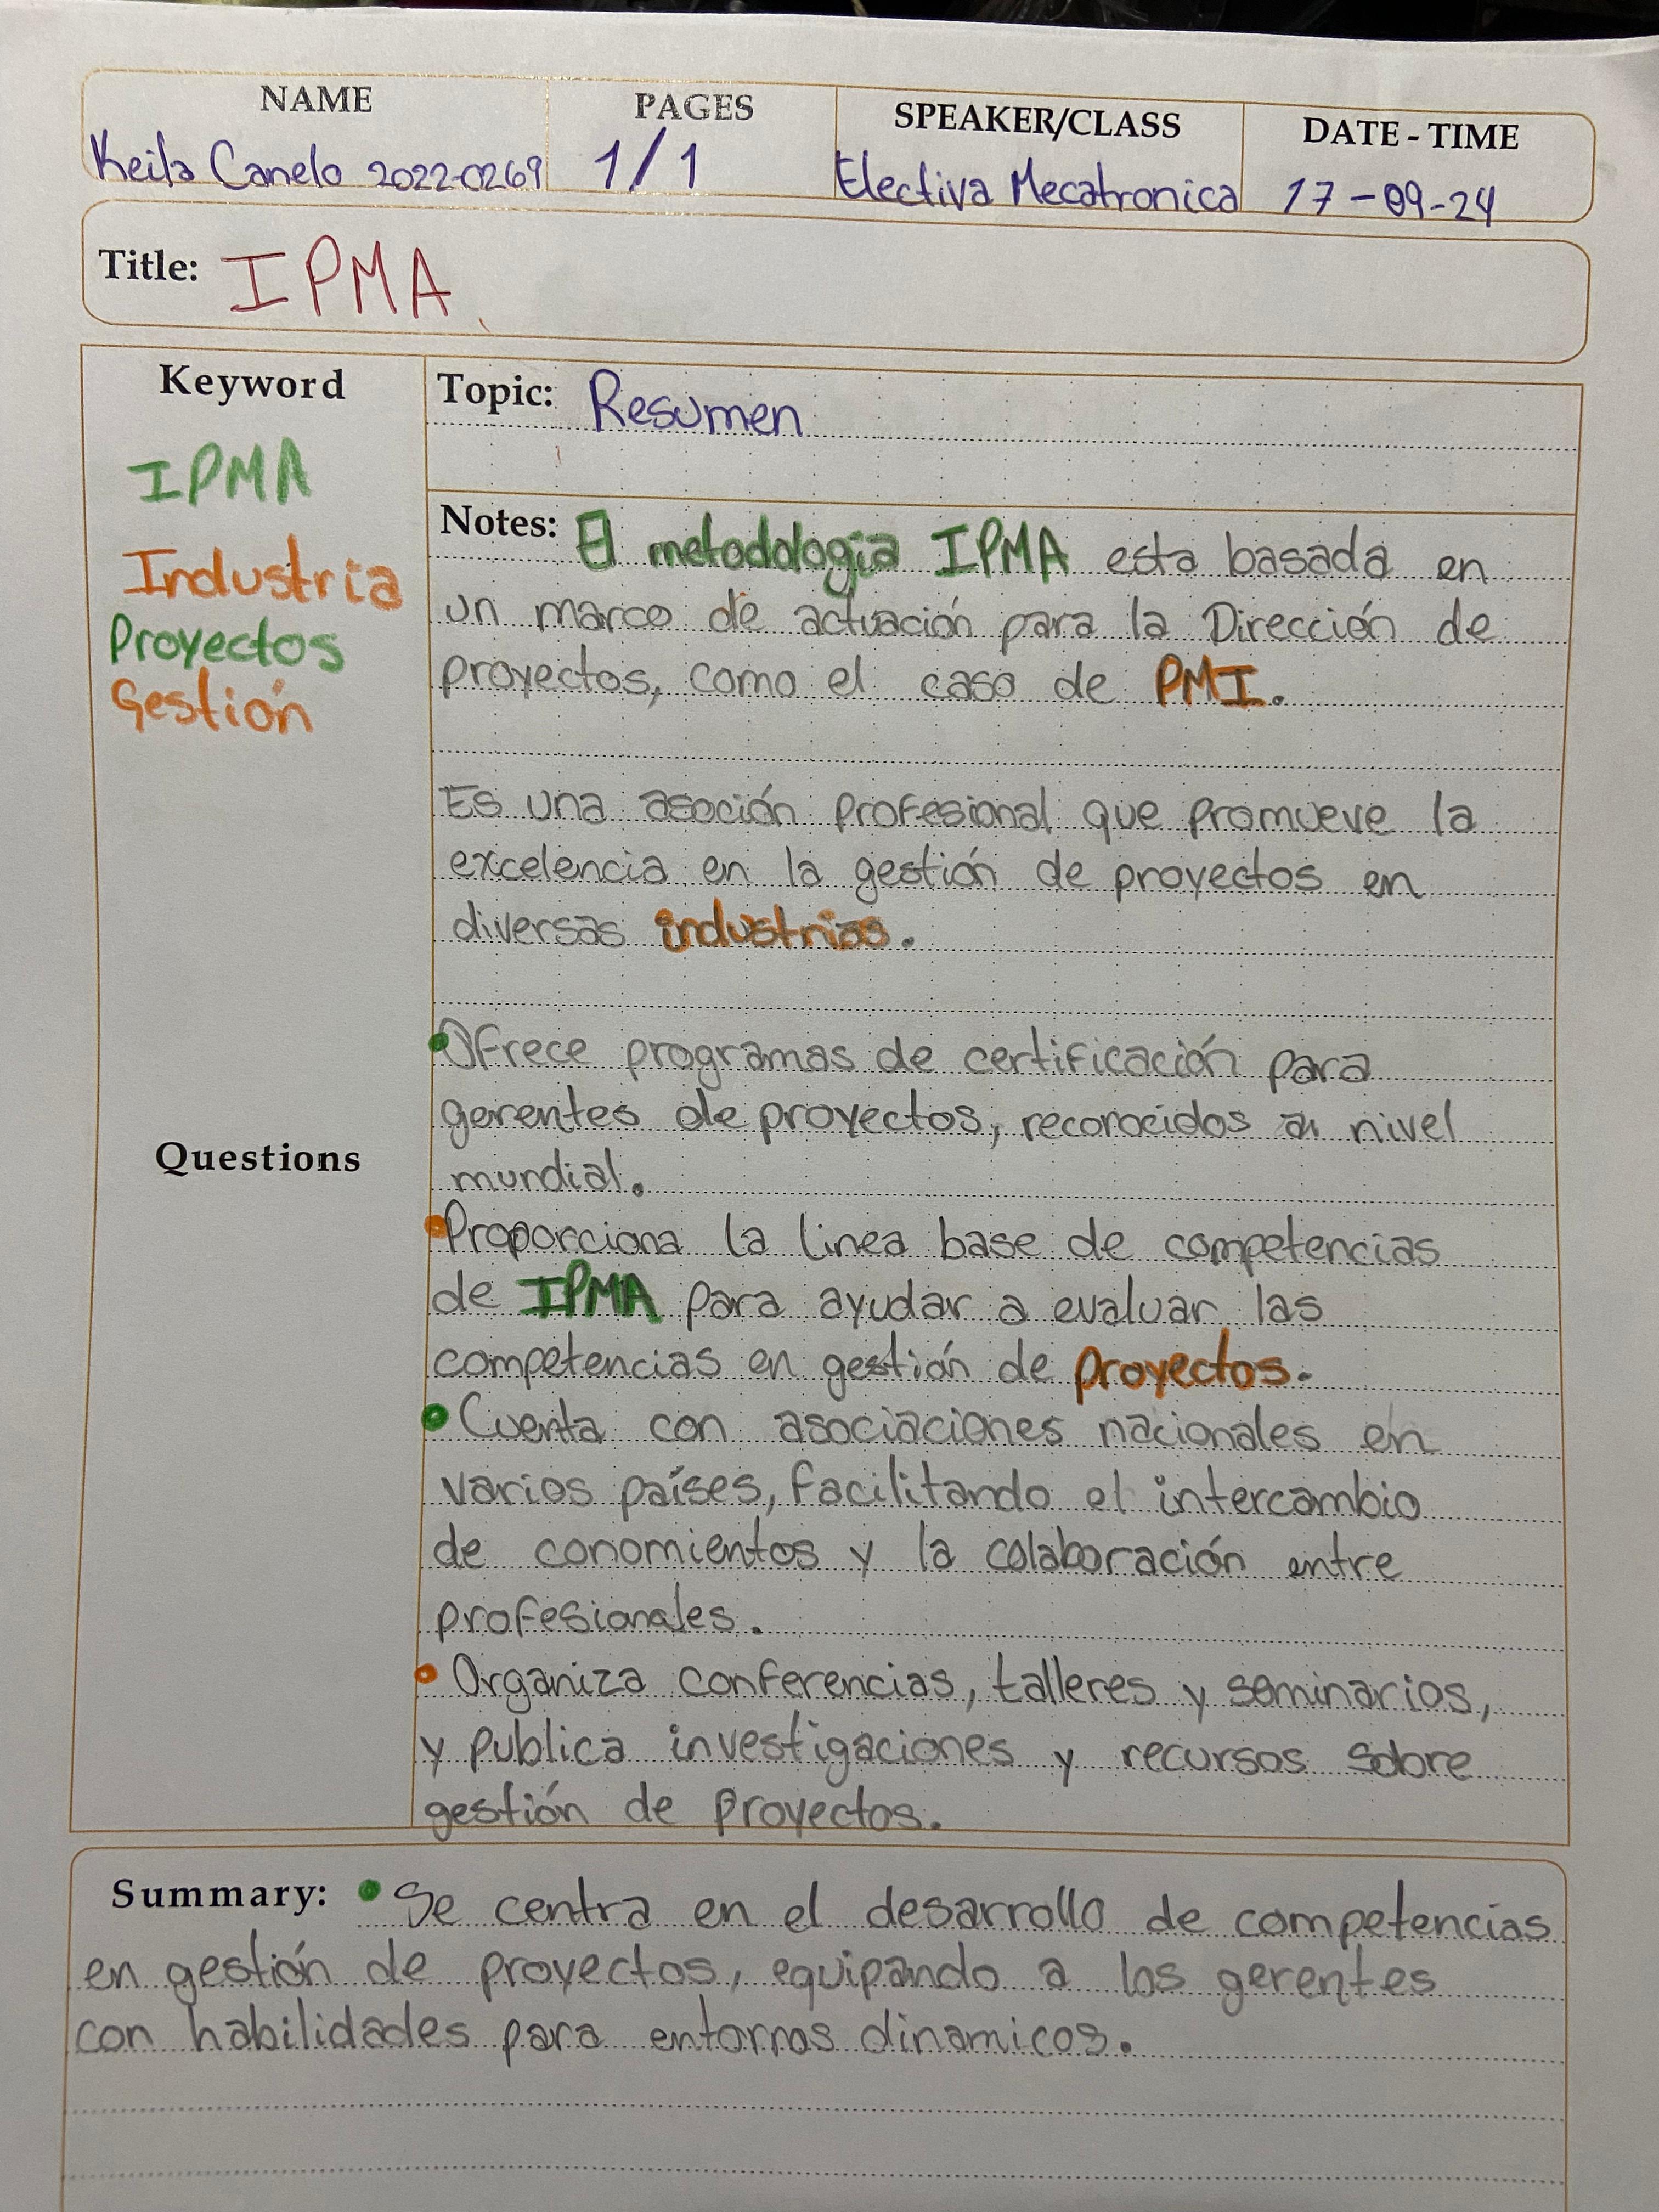 NAME PAGES SPEAKER/CLASS DATE - TIME
Keila Canelo 2022-0269 1/1 Electiva Mecatronica 17-09-24
Title: IPMA
Keyword
IPMA
Industria
Proyectos
Gestión
Questions
Topic: Resumen
Notes: El metodología IPMA esta basada en
un marco de actuación para la Dirección de
proyectos, como el caso de PMI.
Es una asoción profesional que promueve la
excelencia en la gestión de proyectos en
diversas industrias.
•Ofrece programas de certificación para
gerentes de proyectos, reconocidos a nivel
mundial.
•Proporciona la linea base de competencias
de IPMA para ayudar a evaluar las
competencias en gestión de proyectos.
• Cuenta con asociaciones nacionales en
varios países, facilitando el intercambio
de conomientos y la colaboración entre
profesionales.
• Organiza conferencias, talleres y seminarios,
y publica investigaciones y recursos sobre
gestión de proyectos.
Summary: • Se centra en el desarrollo de competencias
en gestión de proyectos, equipando a los gerentes
con habilidades para entornos dinamicos.